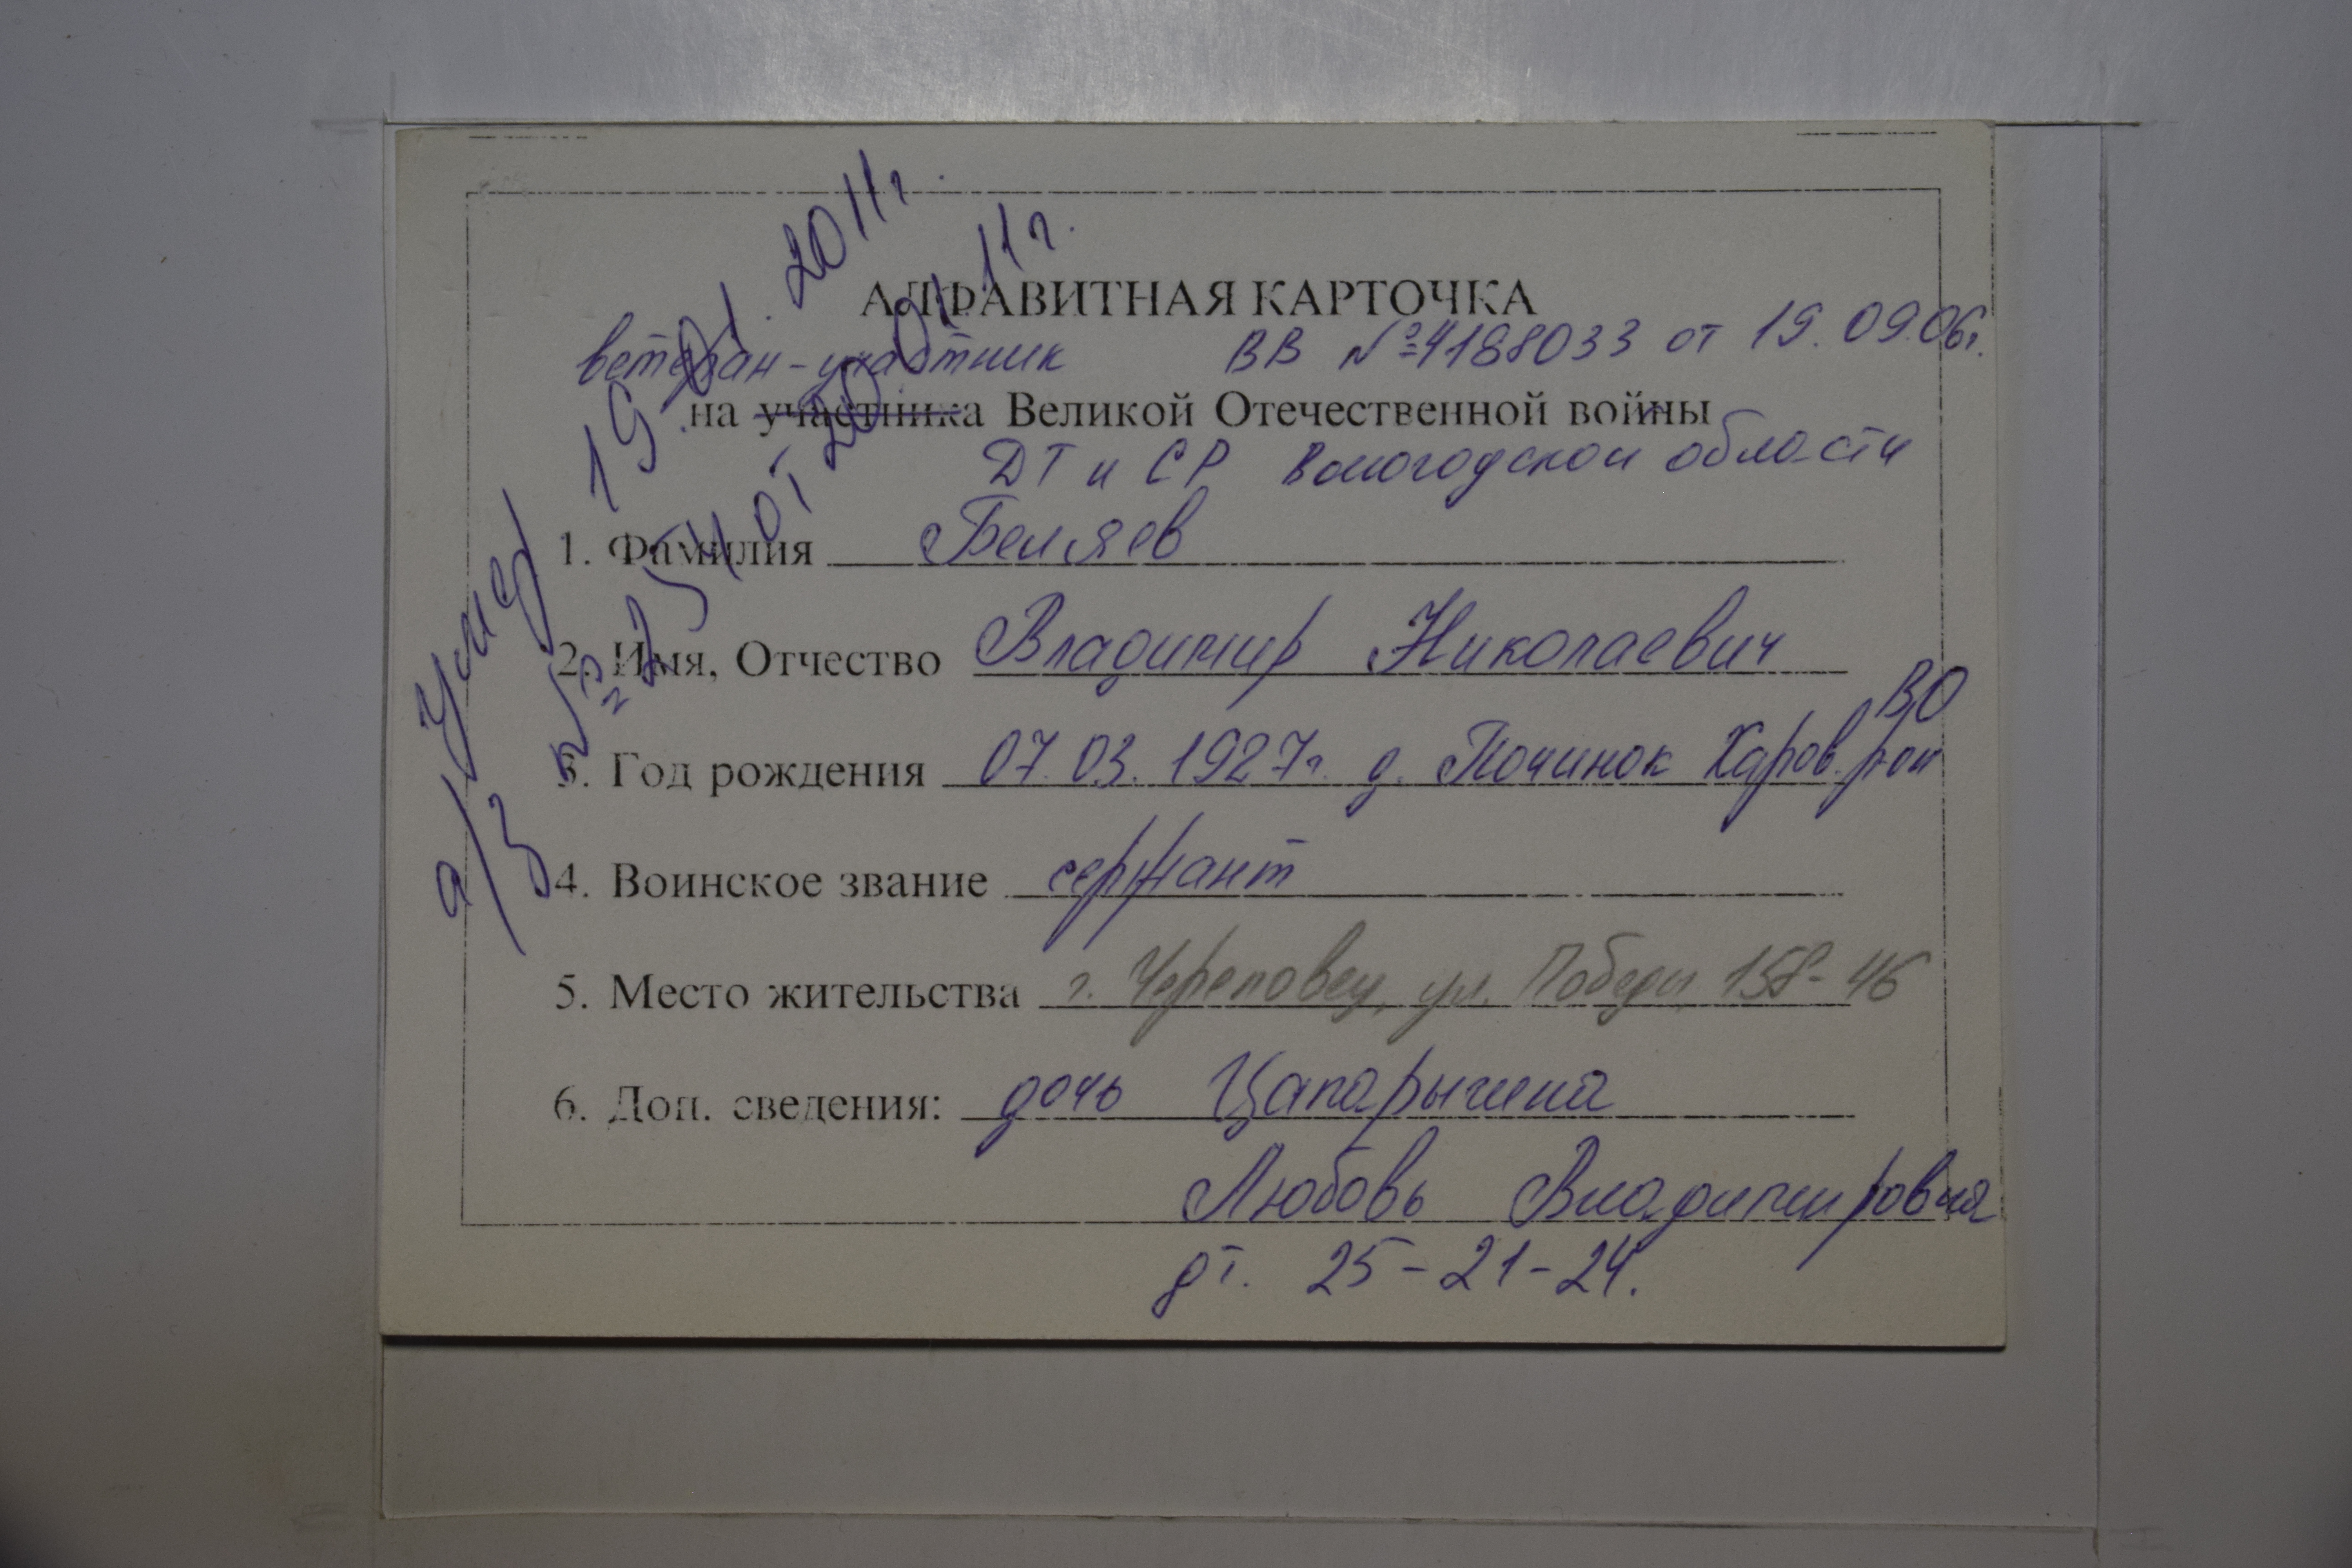 АЛФАВИТНАЯ КАРТОЧКА
ветеран-участник ВВ №4188033 от 19.09.06г.
на участника Великой Отечественной войны
ДТ и СР Вологодской области
1. Фамилия Беляев
2. Имя, Отчество Владимир Николаевич
3. Год рождения 07.03.1927г. д. Починок Харов. р-он ВО
4. Воинское звание сержант
5. Место жительства г. Череповец, ул. Победы 158-46
6. Доп. сведения: дочь
Любовь Владимировна
дт. 25-21-24.
19.01.2011г.
а/з № 254 от 20.01.11г.